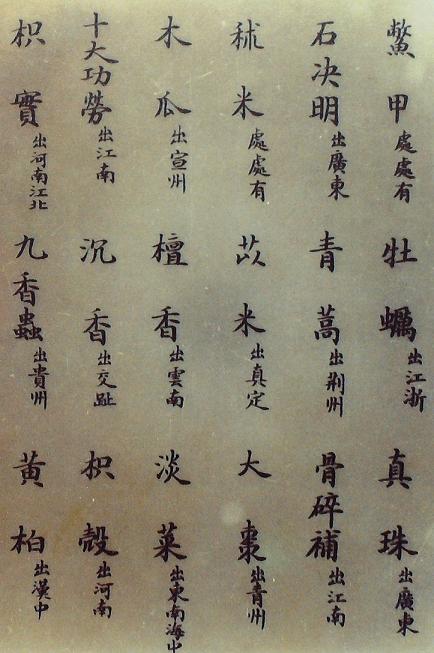 鱉甲處處有 牡蠣出江浙 真珠出廣東
石决明出廣東 青蒿出荆州 骨碎補出江南
秫米處處有 苡米出真定 大棗出青州
木瓜出宣州 檀香出雲南 淡菜出東南海中
十大功勞出江南 沉香出交趾 枳殼出河南
枳實出河南江北 九香蟲出貴州 黄柏出漢中